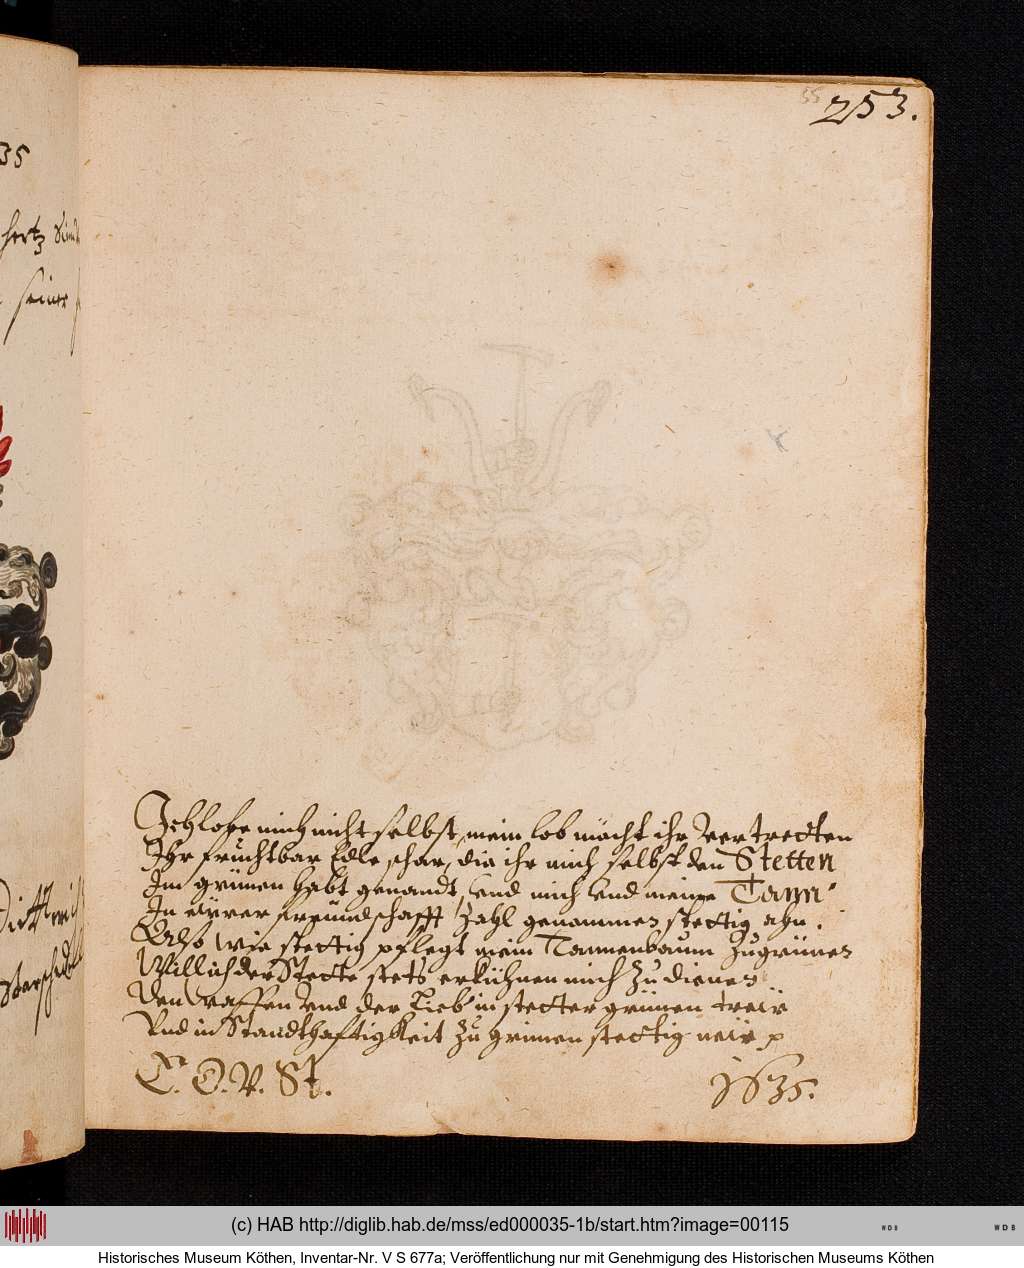 35
hertz
seiner
55
253.
Ich lobe mich nicht selbst, mein lob mächt ihr vertretten
Ihr fruchtbar Edle schar, die ihr mich selbst den Stetten
Im grünen habt genandt, vnd mich vnd meine Tann
In eürer freündschafft Zahl genommen stettig ahn.
Also wie stettig pflegt mein Tannenbaum Zugrünen
Will ich der Stette stets erkühnen mich Zu dienen
Den Waffen vnd der Lieb' in stetter grünen treüe
Vnd in Standthafftigkeit Zu grünen stettig neüe
C. O. V. St.
1635.
(c) HAB http://diglib.hab.de/mss/ed000035-1b/start.htm?image=00115
WDB
WDB
Historisches Museum Köthen, Inventar-Nr. V S 677a; Veröffentlichung nur mit Genehmigung des Historischen Museums Köthen